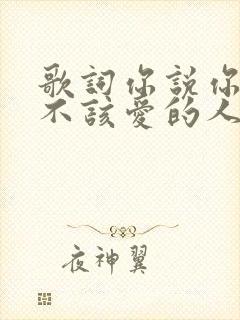 歌詞你說你
不該愛的人
夜神翼